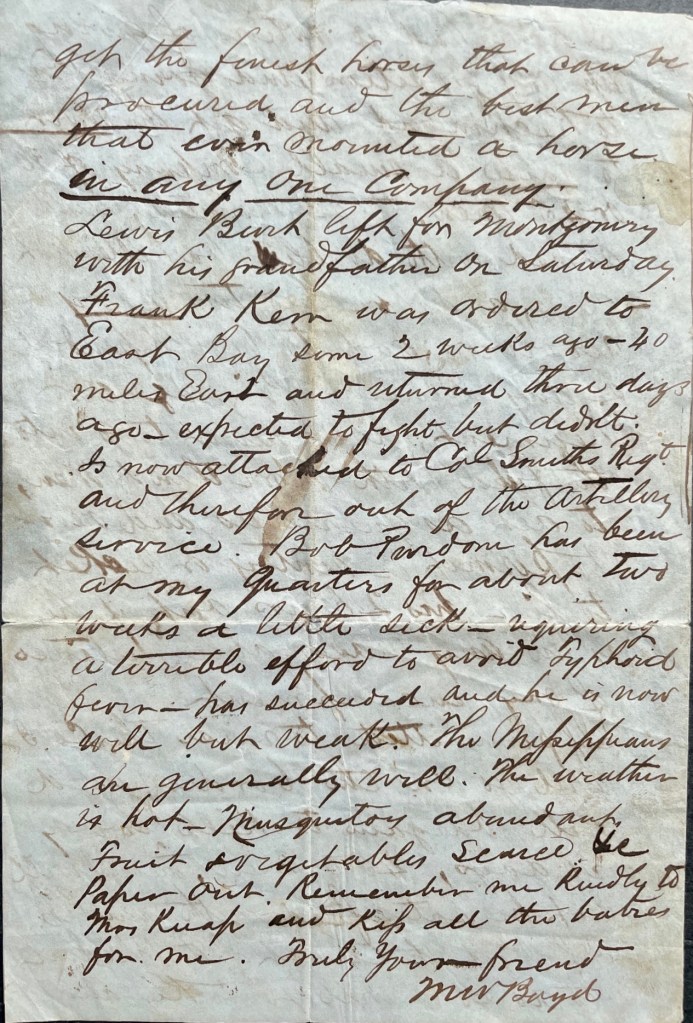 get the finest horses that can be
procured and the best men
that ever mounted a horse
in any one Company.
Lewis Burt left for Montgomery
with his grandfather on Saturday
Frank Kern was ordered to
East Bay some 2 weeks ago - 40
miles East and returned three days
ago - expected to fight but didn't.
Is now attached to Col Smiths Regt
and therefore out of the Artillery
service. Bob Purdom has been
at my quarters for about two
weeks a little sick - requiring
a terrible efford to avoid Typhoid
fever - has succeeded and he is now
well but weak. The Missippians
are generally well. The weather
is hot - Musquitoes abundant,
Fruit & vegetables Scarce &c
Paper out. Remember me Kindly to
Mrs Knap and Kiss all the babies
for me. Truly Your friend
MW Boyd